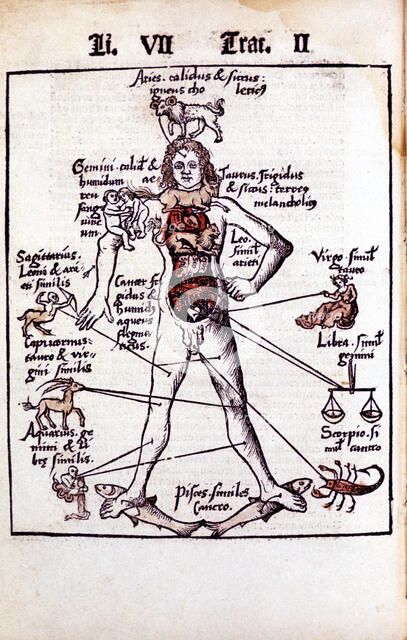 Li. VII Trac. II
Aries. calidus & siccus:
igneus cho lericꝰ
Gemini. calidꝰ &
humidum ae
reu
sang
uine
um.
Taurus. frigidus
& siccus: terreꝰ
melancholicꝰ
Leo.
simil
arieti
Sagittarius.
Leoni & ari
eti similis
Cancer fri
gidus &
humidꝰ
aqueus
flegma
ticus.
Virgo. simil
tauro
Capricornus:
tauro & vir-
gini similis
Libra. simil
gemini
Aquarius. ge
mini & li
bre similis.
Scorpio. si
mil cancro
Pisces. similes
Cancro.